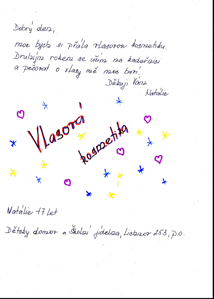 Dobrý den,
moc bych si přála vlasovou kosmetiku.
Druhým rokem se učím na kadeřnici
a pečovat o vlasy mě moc baví.
Děkuji Vám
Natálie
Vlasová
kosmetika
Natálie 17 let
Dětský domov a Školní jídelna, Lichnov 253, p.o.